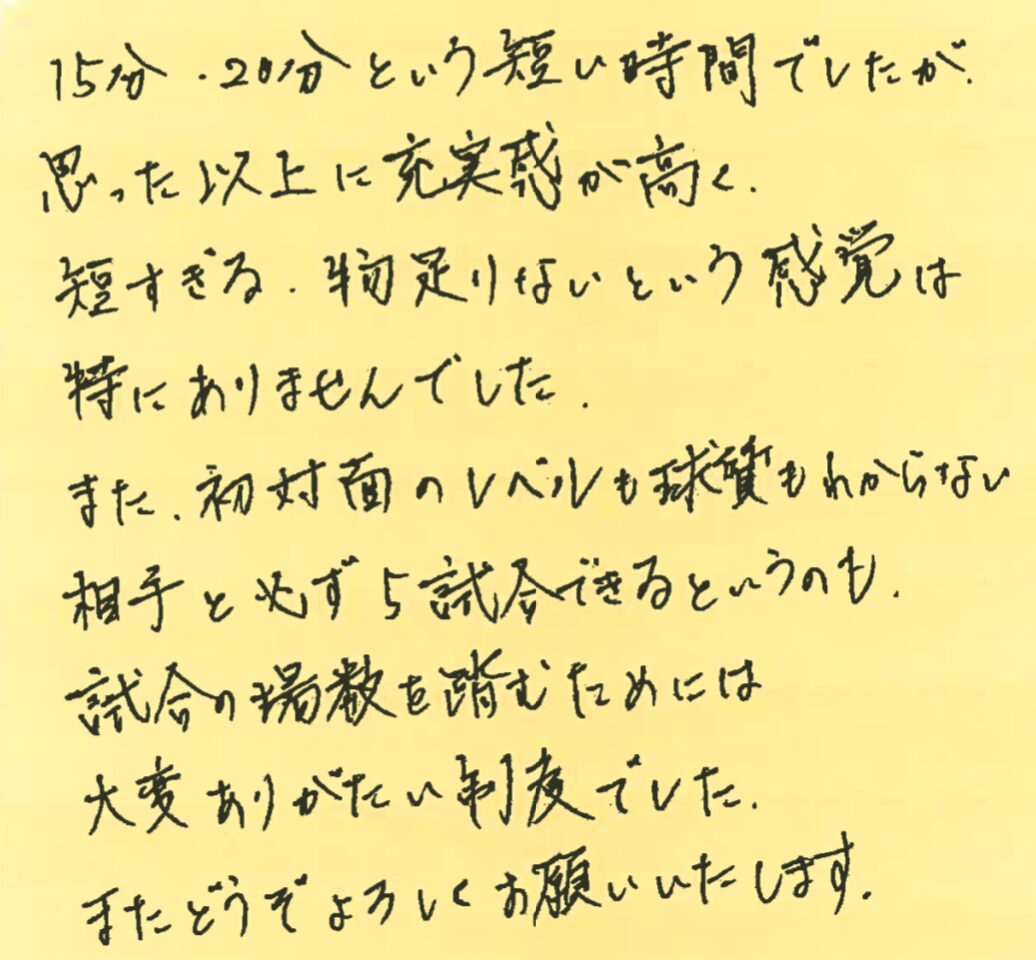 15分・20分という短い時間でしたが、
思った以上に充実感が高く、
短すぎる、物足りないという感覚は
特にありませんでした。
また、初対面のレベルも球質もわからない
相手と必ず5試合できるというのも、
試合の場数を踏むためには
大変ありがたい制度でした。
またどうぞよろしくお願いいたします。